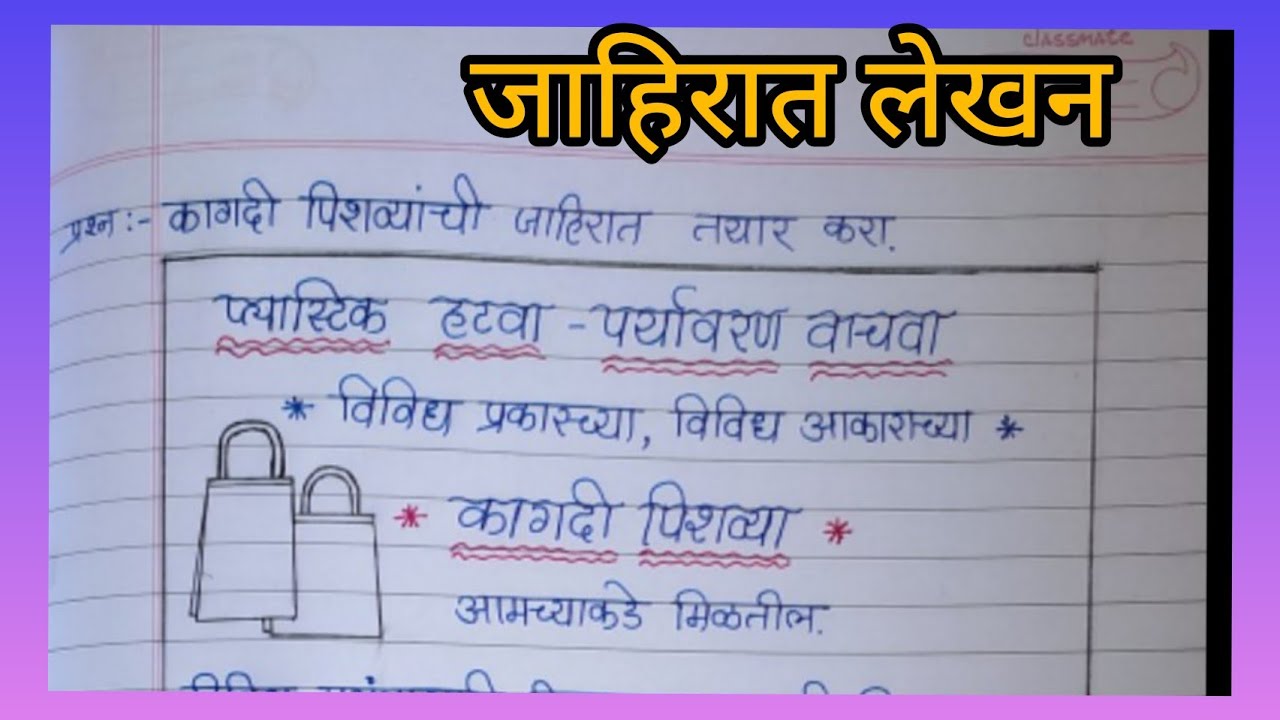 classmate
जाहिरात लेखन
प्रश्न :- कागदी पिशव्यांची जाहिरात तयार करा.
प्लास्टिक हटवा - पर्यावरण वाचवा
* विविध प्रकारच्या, विविध आकाराच्या *
* कागदी पिशव्या *
आमच्याकडे मिळतील.